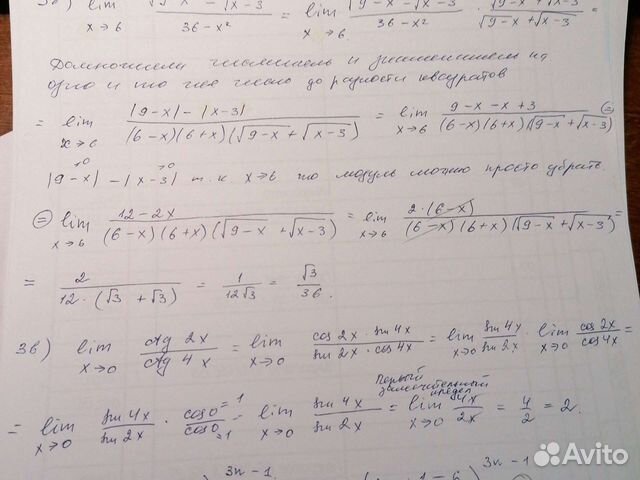 3б) lim x→6 (√9-x - √x-3)/(36-x²) = lim x→6 (√9-x - √x-3)/(36-x²) · (√9-x + √x-3)/(√9-x + √x-3) =
Домножаем числитель и знаменатель на
одно и то же число до разности квадратов
= lim x→6 (|9-x| - |x-3|)/((6-x)(6+x)(√9-x + √x-3)) = lim x→6 (9-x-x+3)/((6-x)(6+x)(√9-x + √x-3)) =
|9-x| - |x-3| т.к. x→6 то модуль можно просто убрать.
= lim x→6 (12-2x)/((6-x)(6+x)(√9-x + √x-3)) = lim x→6 (2·(6-x))/((6-x)(6+x)(√9-x + √x-3)) =
= 2/(12·(√3 + √3)) = 1/(12√3) = √3/36.
3в) lim x→0 (ctg 2x)/(ctg 4x) = lim x→0 (cos 2x · sin 4x)/(sin 2x · cos 4x) = lim x→0 (sin 4x)/(sin 2x) · lim x→0 (cos 2x)/(cos 4x) =
Первый замечательный предел
= lim x→0 (sin 4x)/(sin 2x) · (cos 0 = 1)/(cos 0 = 1) = lim x→0 (sin 4x)/(sin 2x) = lim x→0 4x/2x = 4/2 = 2.
3x-1 3x-1
Avito